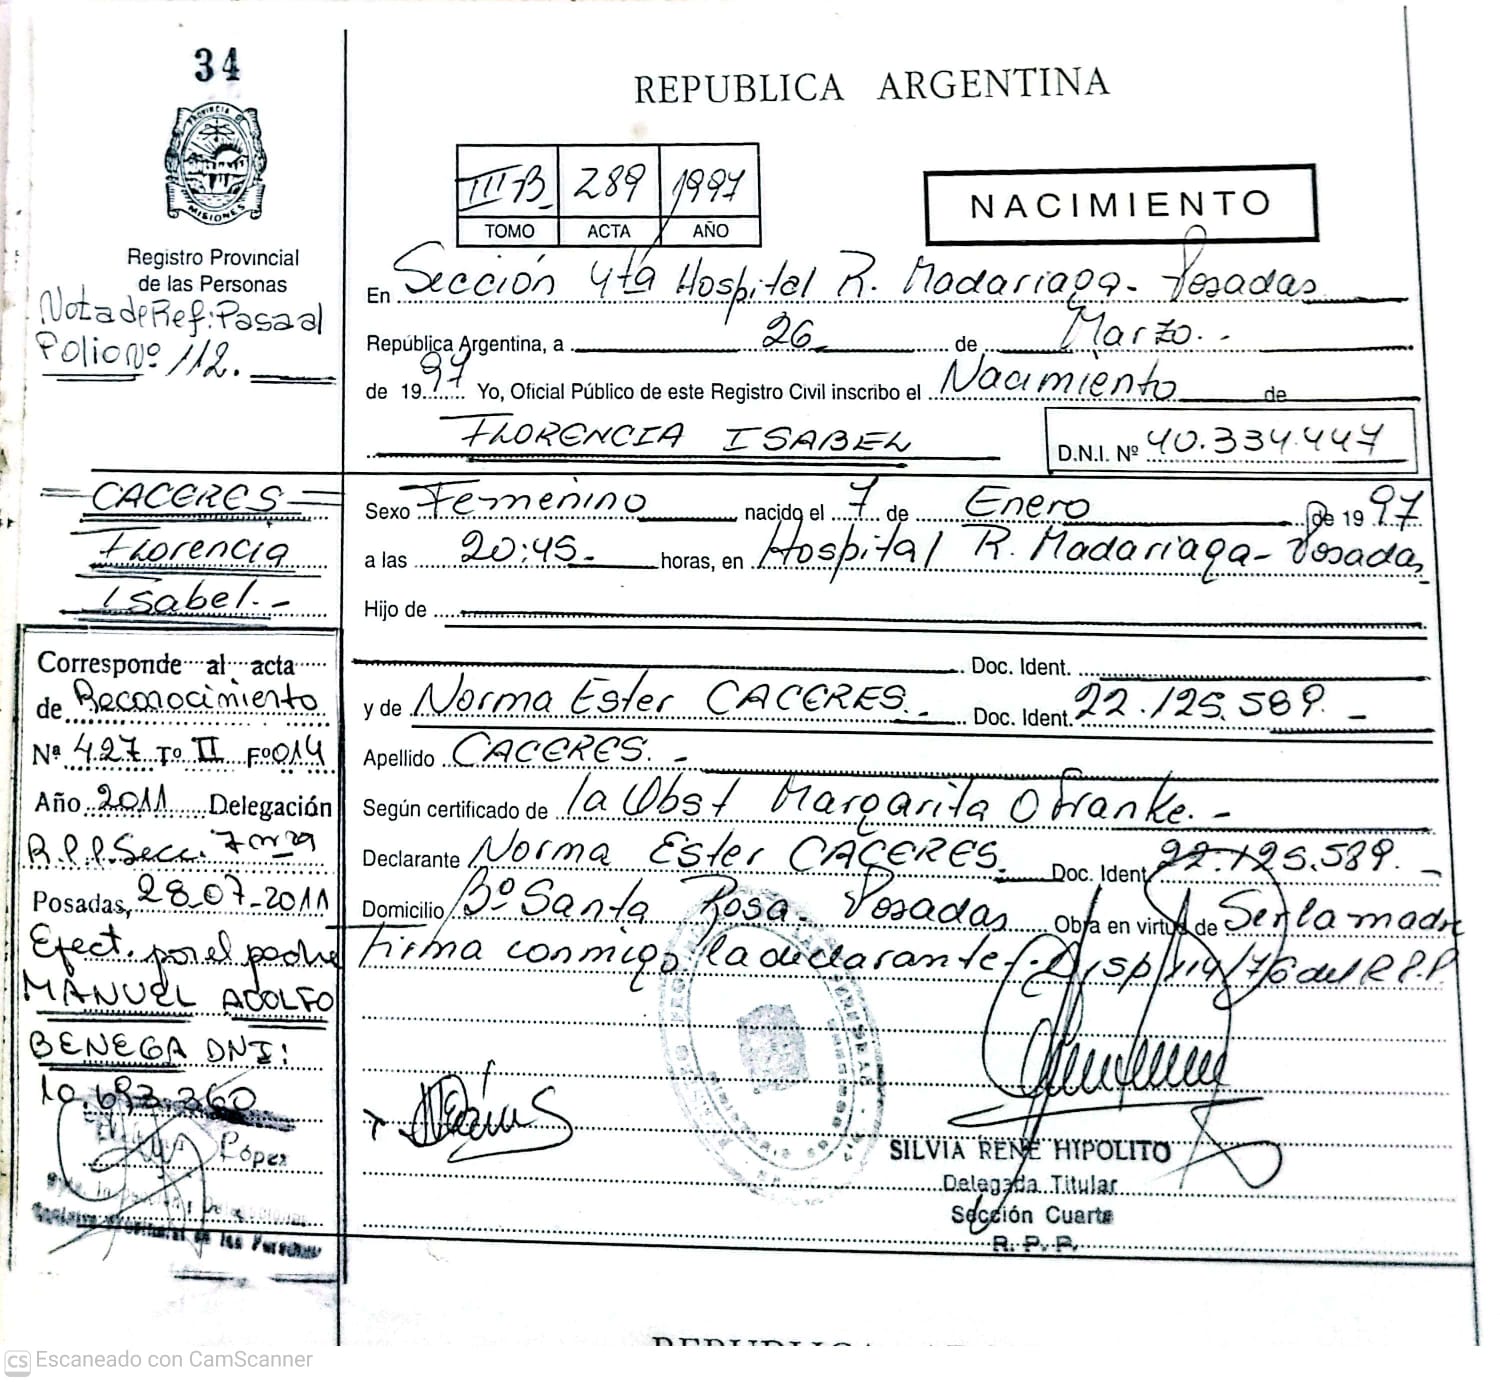 34
REPUBLICA ARGENTINA
PROVINCIA DE
MISIONES
Registro Provincial
de las Personas
Nota de Ref: Pasa al
Folio Nº 112.
III B 289 1997
TOMO ACTA AÑO
NACIMIENTO
En Sección 4ta Hospital R. Madariaga - Posadas
República Argentina, a 26 de Marzo.-
de 1997 Yo, Oficial Público de este Registro Civil inscribo el Nacimiento de
FLORENCIA ISABEL
D.N.I. Nº 40.334.447
CACERES
Florencia
Isabel.-
Sexo Femenino nacido el 7 de Enero de 1997
a las 20:45- horas, en Hospital R. Madariaga - Posadas
Hijo de
Doc. Ident.
y de Norma Ester CACERES.- Doc. Ident. 22.125.589.-
Apellido CACERES.-
Según certificado de la Obst Margarita O Franke.-
Declarante Norma Ester CACERES. Doc. Ident 22.125.589.-
Domicilio Bº Santa Rosa - Posadas Obra en virtud de Ser la madre
Firma conmigo la declarante. Disp 114/76 del R.P.P.
Corresponde al acta
de Reconocimiento
Nª 427 Tº II Fº 014
Año 2011 Delegación
R.P.P. Secc. 7 ma
Posadas, 28-07-2011
Efect. por el padre
MANUEL ADOLFO
BENEGA DNI:
10.693.360
López
SILVIA RENE HIPOLITO
Delegada Titular
Sección Cuarta
R. P. P.
de las Personas
CS Escaneado con CamScanner